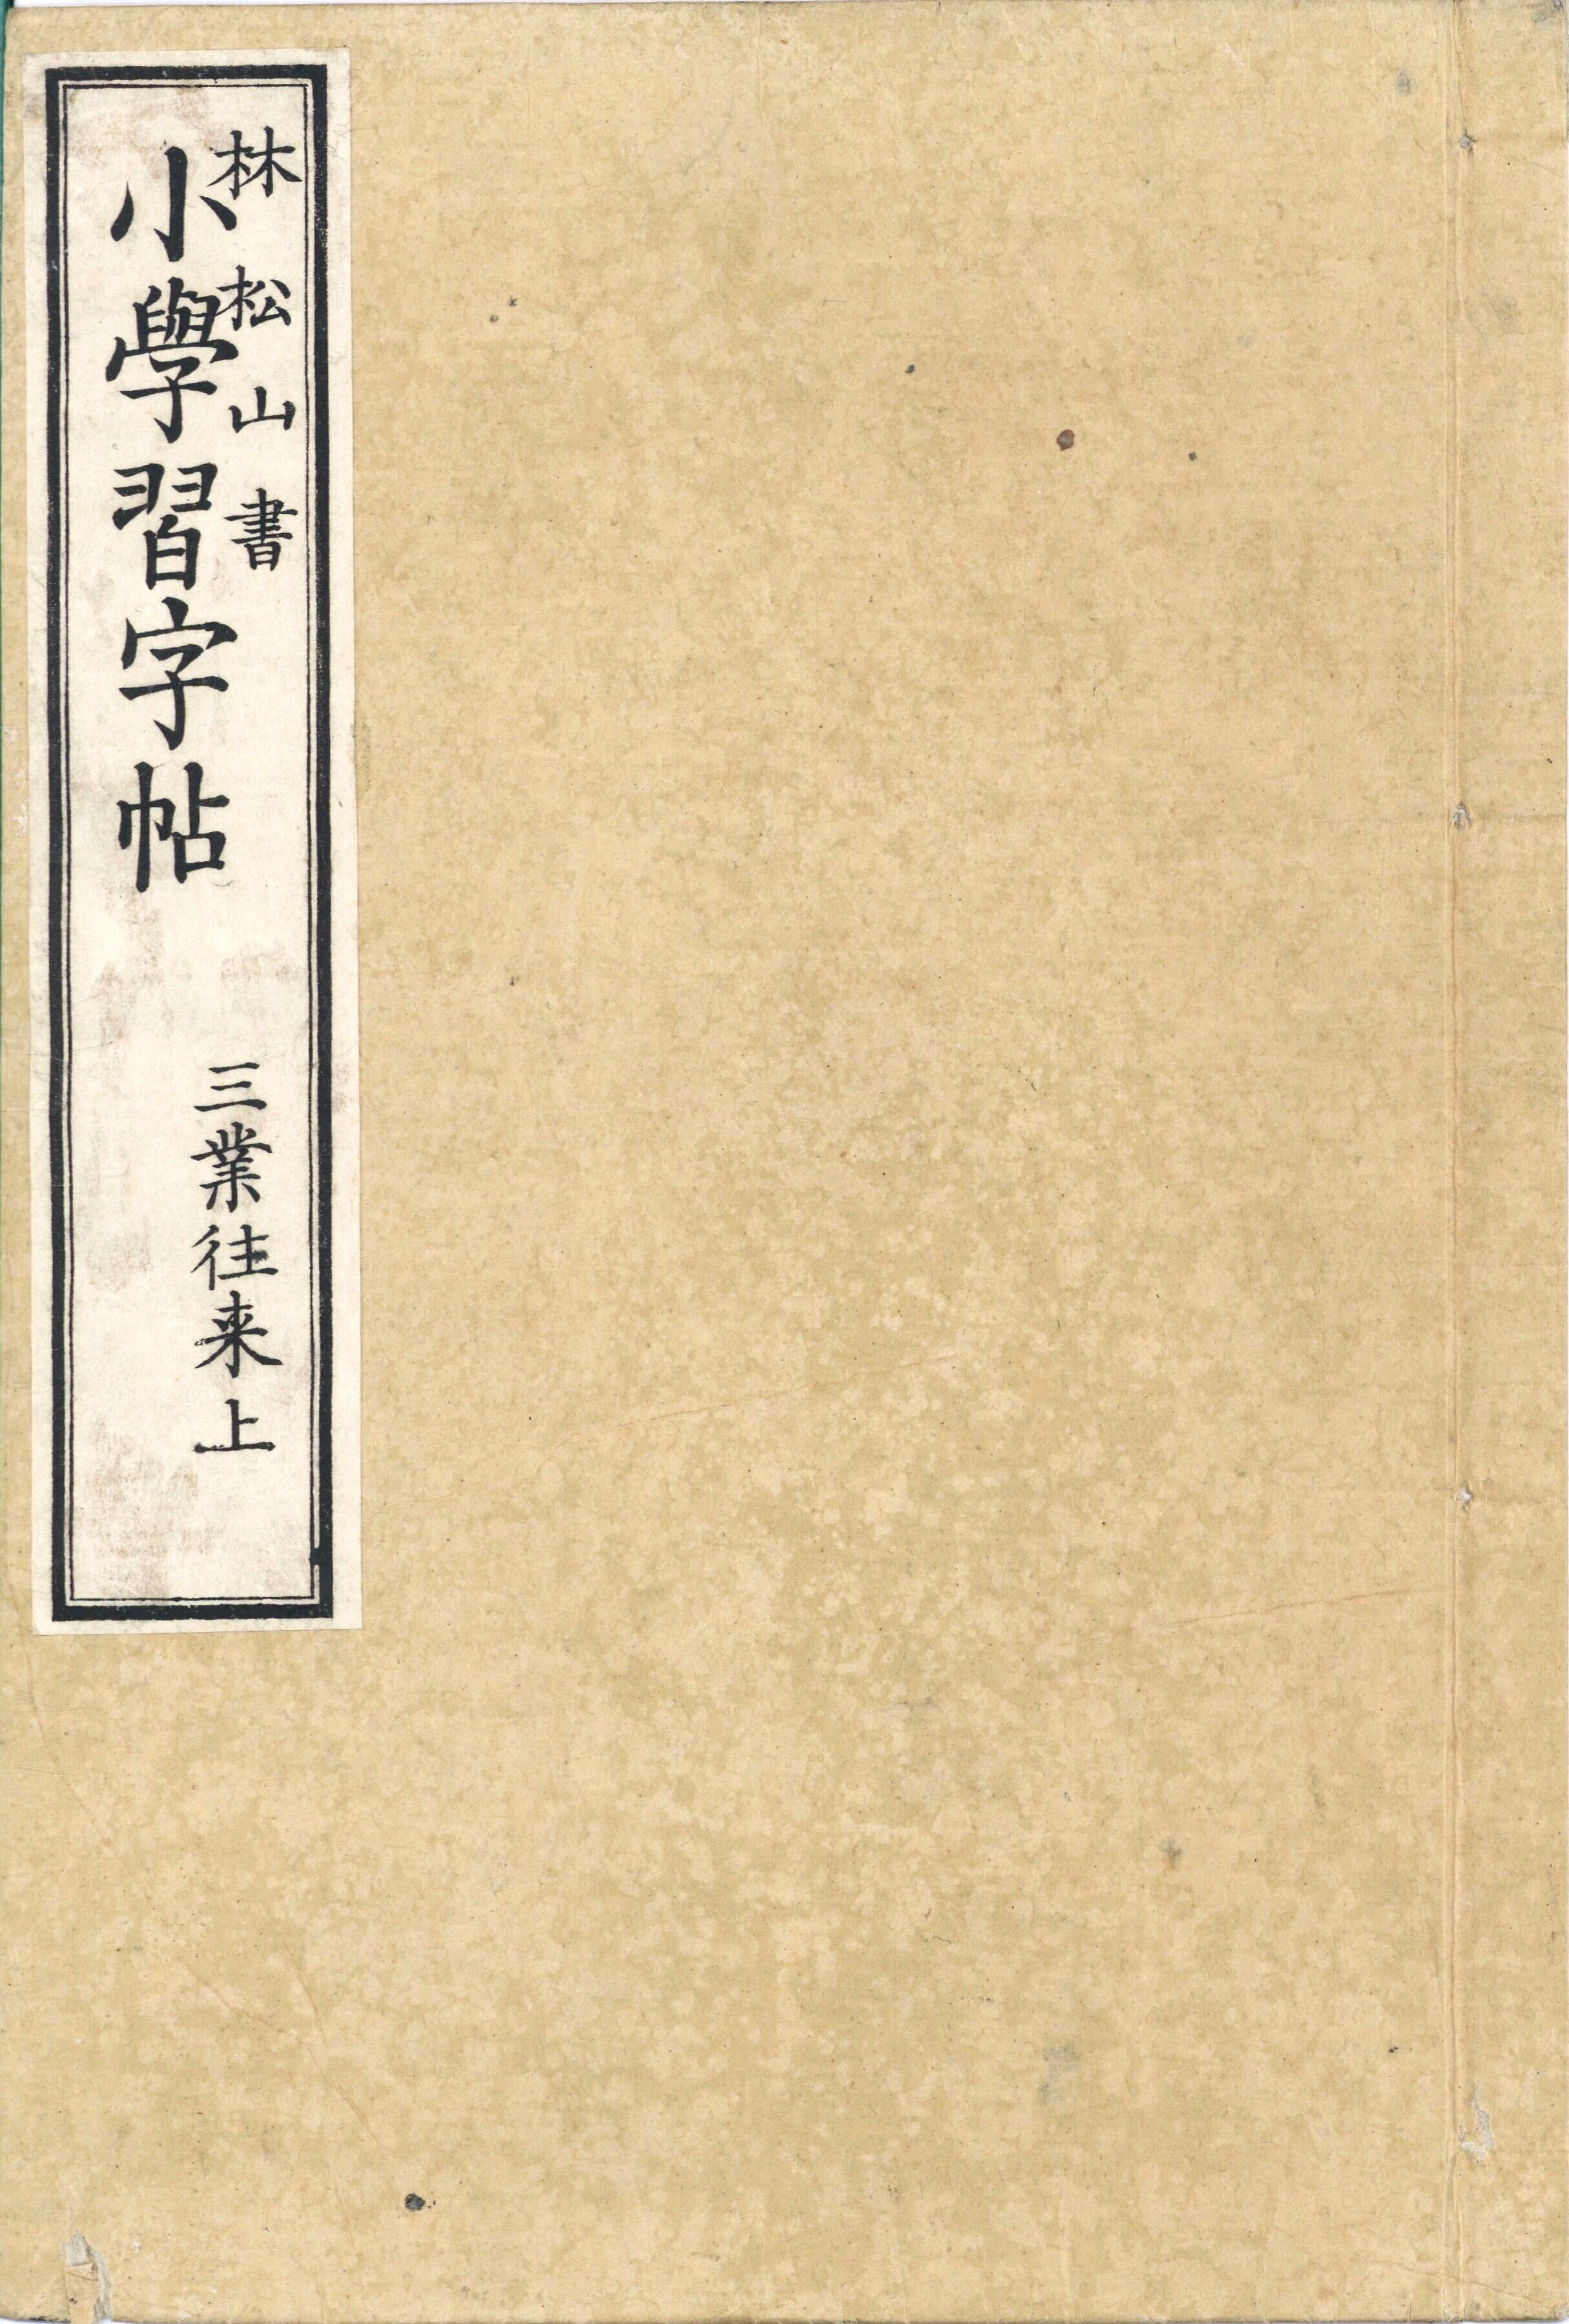 林松山書
小學習字帖
三業往来上